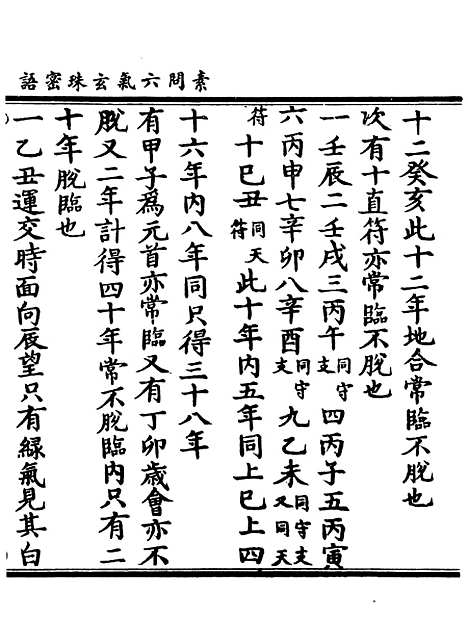 素問六氣玄珠密語
十二癸亥此十二年地合常臨不脫也
次有十直符亦常臨不脫也
一壬辰二壬戌三丙午同守支四丙子五丙寅
六丙申七辛卯八辛酉同守支九乙未同守支又同天
符十巳丑同天符此十年內五年同上巳上四
十六年內八年同只得三十八年
有甲子為元首亦常臨又有丁卯歲會亦不
脫又二年計得四十年常不脫臨內只有二
十年脫臨也
一乙丑運交時面向辰望只有緑氣見其白